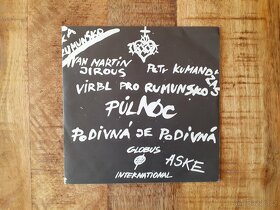 RUMUNSKO
IVAN MARTIN
JIROUS
PETR KUMANDŽAS
VÍRBL PRO RUMUNSKO
PŮLNOC
PODIVNÁ JE PODIVNÁ
GLOBUS
INTERNATIONAL
ASKE